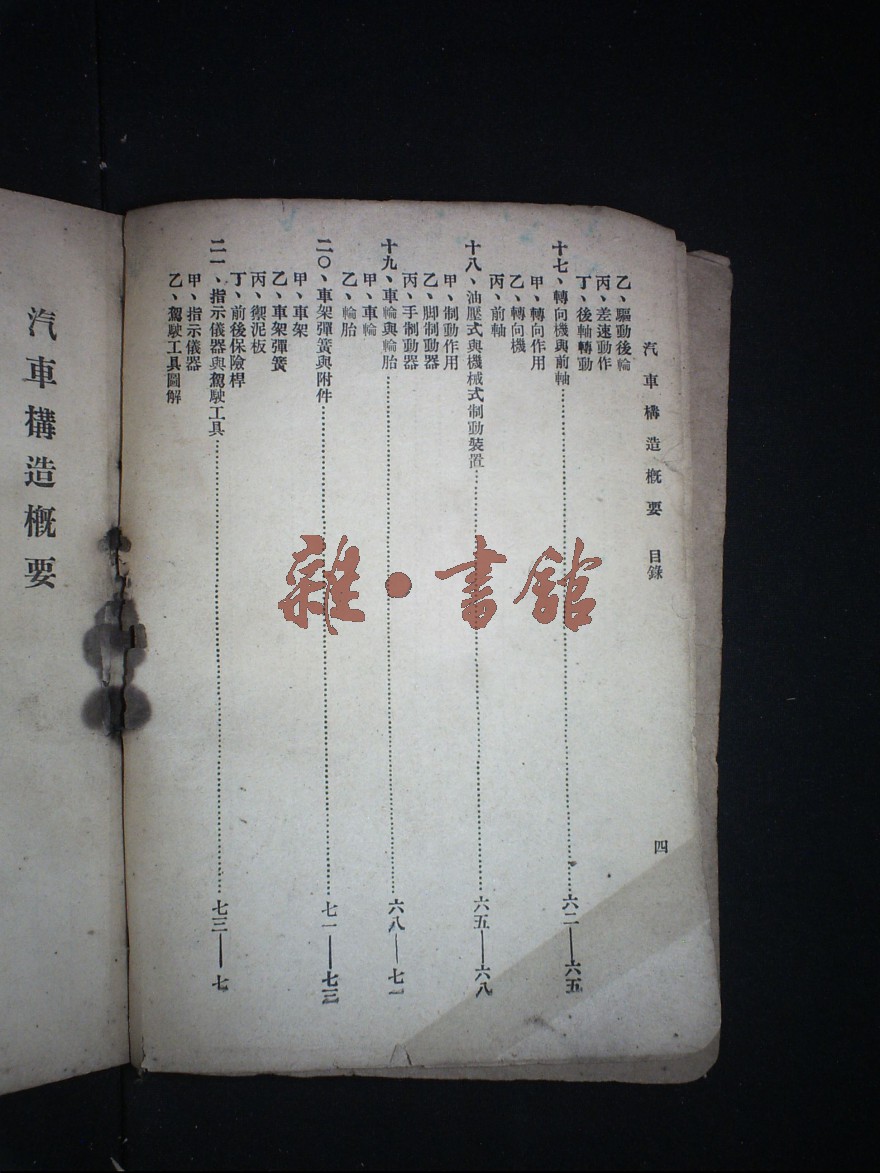 汽車構造概要 目錄 四
乙、驅動後輪
丙、差速動作
丁、後軸轉動
十七、轉向機與前軸……六二——六五
甲、轉向作用
乙、轉向機
丙、前軸
十八、油壓式與機械式制動裝置……六五——六八
甲、制動作用
乙、脚制動器
丙、手制動器
十九、車輪與輪胎……六八——七一
甲、車輪
乙、輪胎
二〇、車架彈簧與附件……七一——七三
甲、車架
乙、車架彈簧
丙、禦泥板
丁、前後保險桿
二一、指示儀器與駕駛工具……七三——七
甲、指示儀器
乙、駕駛工具圖解
汽車構造概要
雜·書館